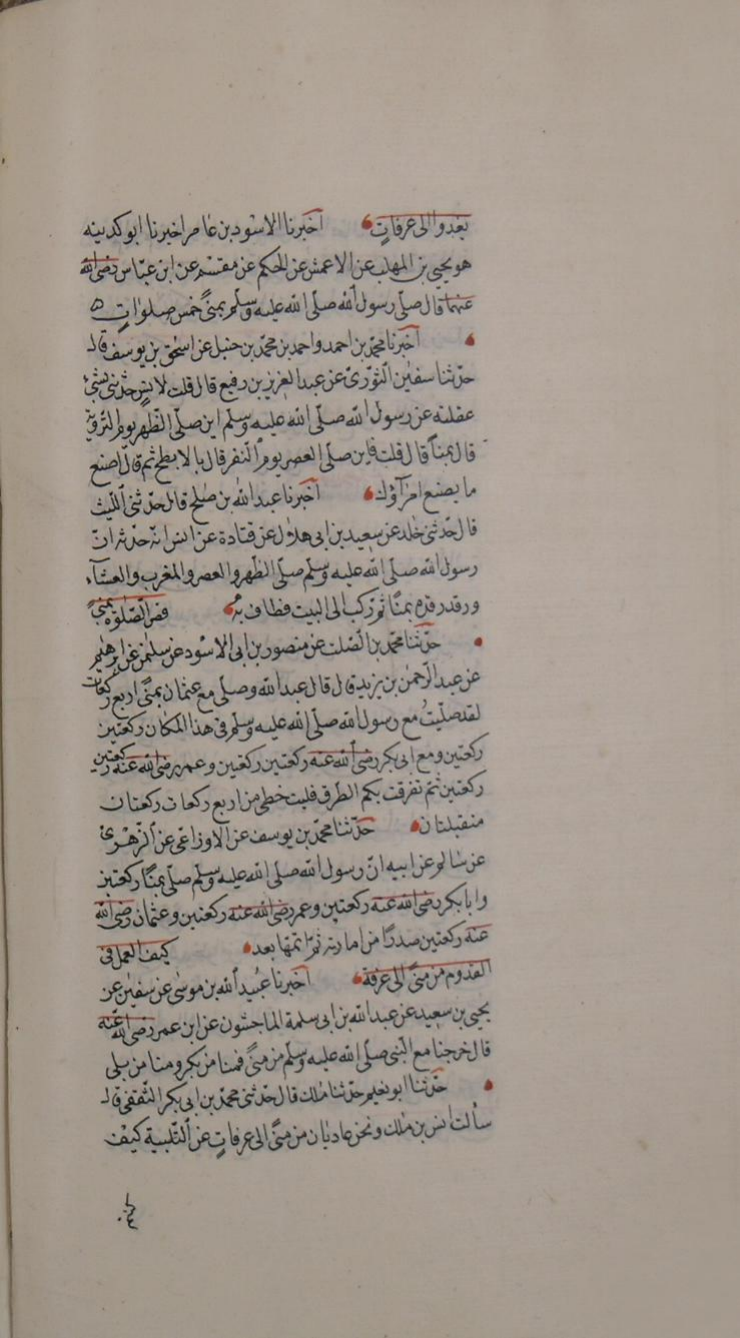 يغدوا الى عرفات اخبرنا الاسود بن عامر اخبرنا ابو كدينه
هو يحيى بن المهلب عن الاعمش عن الحكم عن مقسم عن ابن عباس رضى الله
عنهما قال صلى رسول الله صلى الله عليه وسلم بمنى خمس صلوات
اخبرنا محمد بن احمد واحمد بن محمد بن حنبل عن اسحق بن يوسف قال
حدثنا سفين الثورى عن عبد العزيز بن رفيع قال قلت لانس حدثنى بشىء
عقلته عن رسول الله صلى الله عليه وسلم اين صلى الظهر يوم التروية
قال بمنا قال قلت فاين صلى العصر يوم النفر قال بالابطح ثم قال اصنع
ما يصنع امراؤك اخبرنا عبد الله بن صلح قال حدثنى الليث
قال حدثنى خلد عن سعيد بن ابى هلال عن قتادة عن انس انه حدثه ان
رسول الله صلى الله عليه وسلم صلى الظهر والعصر والمغرب والعشاء
ورقد رقده بمنا ثم ركب الى البيت فطاف به قصر الصلوة بمنى
حدثنا محمد بن الصلت عن منصور بن ابى الاسود عن سليمن عن ابرهيم
عن عبد الرحمن بن يزيد قال قال عبد الله وصلى مع عثمان بمنى اربع ركعات
لقد صليت مع رسول الله صلى الله عليه وسلم فى هذا المكان ركعتين
ركعتين ومع ابى بكر رضى الله عنه ركعتين ركعتين وعمر رضى الله عنه ركعتين
ركعتين ثم تفرقت بكم الطرق فليت حظى من اربع ركعات ركعتان
متقبلتان حدثنا محمد بن يوسف عن الاوزاعى عن الزهرى
عن سالم عن ابيه ان رسول الله صلى الله عليه وسلم صلى بمنا ركعتين
وابا بكر رضى الله عنه ركعتين وعمر رضى الله عنه ركعتين وعثمان رضى الله
عنه ركعتين صدرا من امارته ثم اتمها بعد كيف العمل فى
القدوم من منى الى عرفة اخبرنا عبيد الله بن موسى عن سفين عن
يحيى بن سعيد عن عبد الله بن ابى سلمة الماجشون عن ابن عمر رضى الله عنه
قال خرجنا مع النبى صلى الله عليه وسلم من منى فمنا من يكبر ومنا من يلبى
حدثنا ابو نعيم حدثنا ملك قال حدثنى محمد بن ابى بكر الثقفى قال
سألت انس بن ملك ونحن غاديان من منى الى عرفات عن التلبية كيف